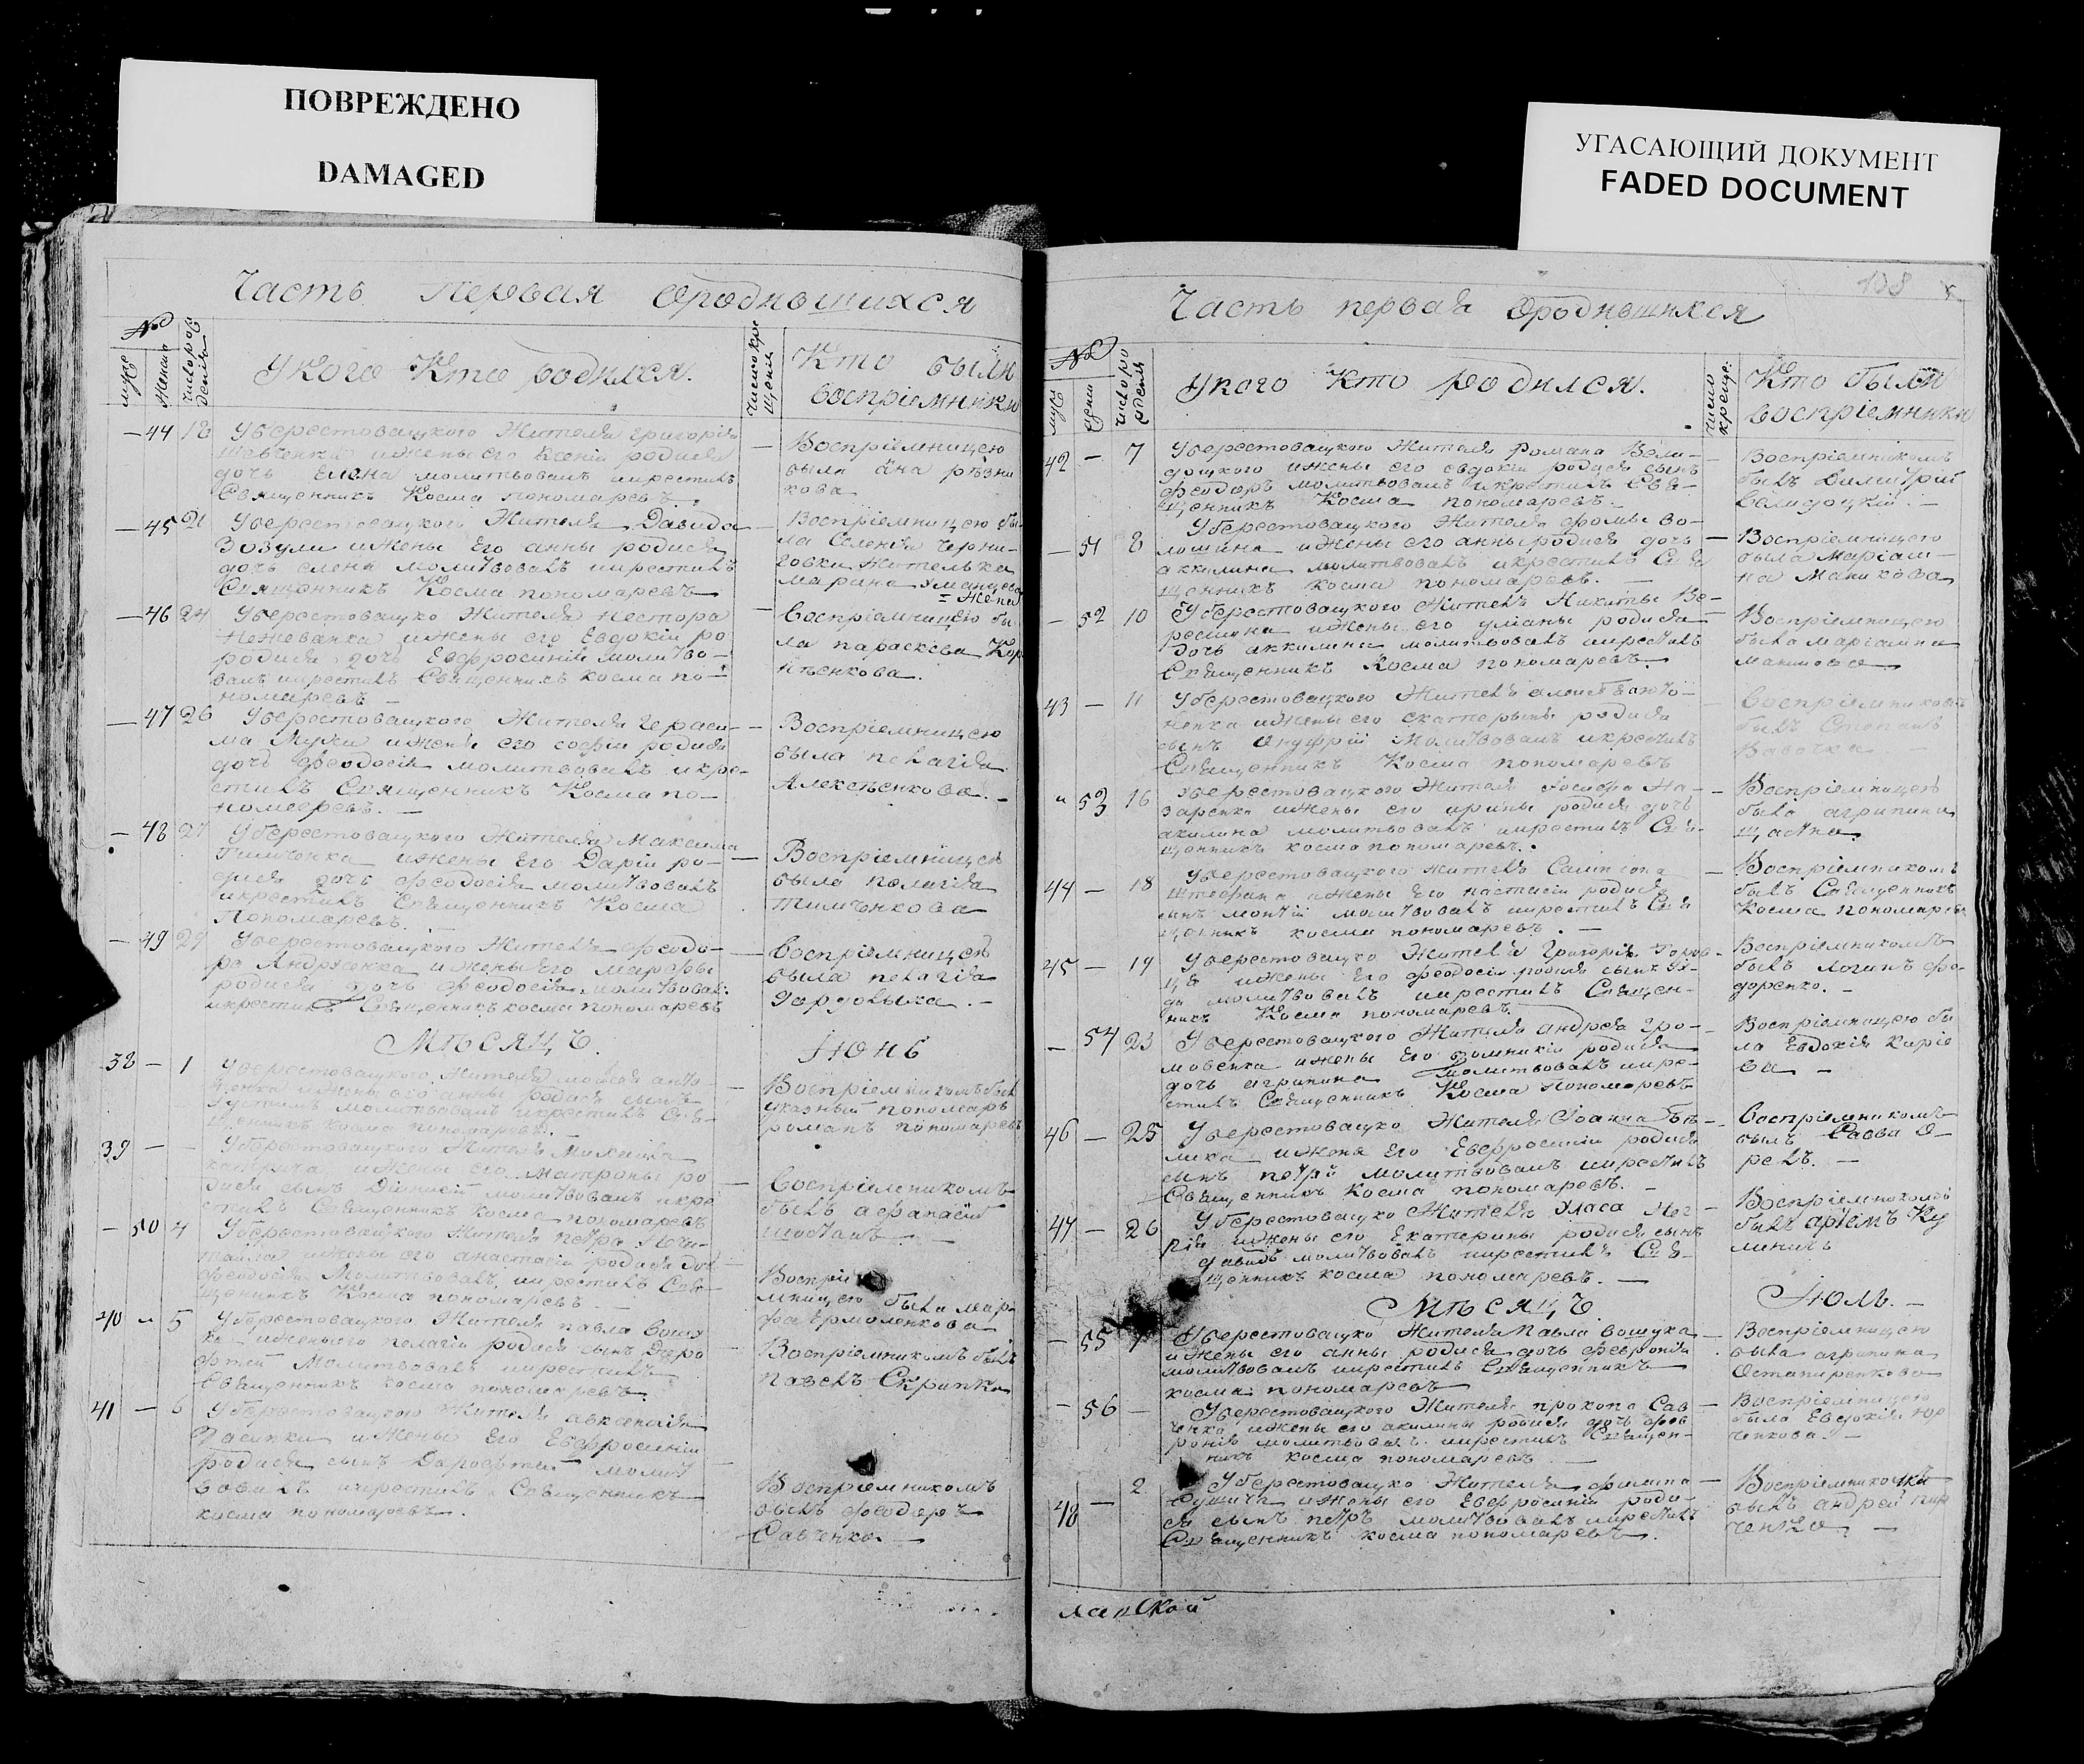 ПОВРЕЖДЕНО
DAMAGED
УГАСАЮЩИЙ ДОКУМЕНТ
FADED DOCUMENT
Часть Первая Ѻродившихся
№
муже
женша
Число рож
денія
У Кого Кто родился.
Число кре
щенія
Кто были
воспріемники
— 44 18 У берестовацкого Жителя григорія
шевченка и жены его Ксеніи родися
дочь Елена молитвовалъ икрестилъ
Священникъ Косма пономаревъ.
Воспріемницею
была анна рѣзни
кова
— 45 21 У берестовацкого Жителя Давида
Зозули и жены Его анны родися
дочь елена молитвовалъ икрестилъ
Священникъ Косма пономаревъ
Воспріемницею бы
ла Селенія Черни-
говки Жителька
марина
жена
— 46 24 У берестовацко Жителя Нестора
и жены его Евдокіи ро
родися дочь Евфросинія молитво-
валъ икрестилъ Священникъ косма по-
номаревъ —
Воспріемницею бы
ла параскева
— 47 26 У берестовацкого Жителя Гераси-
ма Мухи и жены его софіи родися
дочь Феодосія молитвовалъ икре-
стилъ Священникъ Косма по-
номаревъ. —
Воспріемницею
была пелагія
Алексѣенкова. —
— 48 27 У берестовацкого Жителя Максима
Тимченка и жены Его Даріи ро-
дися дочь феодосія молитвовалъ
икрестилъ Священникъ Косма
Пономаревъ.
Воспріемницея
была пелагія
Тимченкова
— 49 29 У берестовацкого Жителя феодо-
ра Андрусенка и жены Его марфы
родися дочь феодосія молитвовалъ
икрестилъ Священникъ косма пономаревъ
Воспріемницея
была пелагія
—
Мѣсяцъ. Іюнь
38 — 1 У берестовацкого Жителя моисея анто
ненка и жены его анны родися сынъ
Іустинъ молитвовалъ икрестилъ Свя-
щенникъ косма пономаревъ. —
Воспріемникомъ былъ
указный пономарь
романъ пономаревъ
39 — У берестовацкого Жителя Михаила
и жены его матроны ро
дися сынъ Діонисій молитвовалъ икре
стилъ Священникъ косма пономаревъ
Воспріемникомъ
былъ афанасій
шостакъ —
— 50 4 У берестовацкого Жителя петра Нечи-
тайла и жены его анастасіи родися доч
феодосія Молитвовалъ икрестилъ Свя-
щенникъ Косма пономаревъ —
Воспріе
мницею была мар
фа Ермоленкова
40 — 5 У берестовацкого Жителя павла
и жены его пелагіи родися сынъ Доро
фтей Молитвовалъ икрестилъ
Священникъ косма пономаревъ
Воспріемникомъ былъ
павелъ Скрипка
41 — 6 У берестовацкого Жителя авксентія
и жены Его Евфросиніи
родися сынъ Дорофтей молит
вовалъ икрестилъ Священникъ
косма пономаревъ.
Воспріемникомъ
былъ феодоръ
Савченко —
138
Часть первая Ѻродившихся
№
муже
Число ро
жденія
У кого Кто родился.
Число
креще:
Кто были
воспріемники
42 — 7 У берестовацкого Жителя романа Вели-
доцкого и жены его евдокіи родися сынъ
феодоръ молитвовалъ икрестилъ Свя-
щенникъ Косма пономаревъ. —
Воспріемникомъ
былъ Димитрій
Велидоцкій. —
— 51 8 У берестовацкого Жителя фомы во-
лошина и жены его анны родися дочь
аккилина молитвовалъ икрестилъ Свя
щенникъ косма пономаревъ. —
Воспріемницею
была маріам-
на Маникова
— 52 10 У берестовацкого Жителя Никиты
и жены его уліаны родися
дочь аккилина молитвовалъ икрестилъ
Священникъ Косма пономаревъ —
Воспріемницею
была маріамна
маникова
43 — 11 У берестовацкого Жителя алексѣя анто-
ненка и жены его екатерины родися
сынъ Онуфрій Молитвовалъ икрестилъ
Священникъ Косма пономаревъ
Воспріемникомъ
былъ Степанъ
— 53 16 У берестовацкого Жителя Іосифа На-
заренка и жены его ирины родися дочь
акилина молитвовалъ икрестилъ Свя-
щенникъ косма пономаревъ.
Воспріемницея
была агрипина
44 — 18 У берестовацкого Жителя Сампсона
Штефана и жены Его настасіи родися
сынъ молитвовалъ икрестилъ Свя
щенникъ косма пономаревъ. —
Воспріемникомъ
былъ Священникъ
Косма пономаревъ
45 — 19 У берестовацко Жителя Григорія
и жены Его феодосіи родися сынъ
молитвовалъ икрестилъ Священ-
никъ Косма пономаревъ
Воспріемникомъ
былъ логинъ фе-
доренко. —
— 54 23 У берестовацкого Жителя андрея гро-
мовенка и жены Его домникіи родися
дочь агрипина молитвовалъ икре-
стилъ Священникъ Косма пономаревъ
Воспріемницею бы
ла Евдокія Киріе
ва —
46 — 25 У берестовацко Жителя Іоанна
и жены Его Евфросиніи родися
сынъ петръ молитвовалъ икрестилъ
Священникъ Косма пономаревъ. —
Воспріемникомъ
былъ Савва О-
релъ. —
47 — 26 У берестовацко Жителя Уласа
и жены его Екатерины родися сынъ
давидъ молитвовалъ икрестилъ Свя-
щенникъ косма пономаревъ. —
Воспріемникомъ
былъ артемъ Ку
линичъ
Мѣсяцъ Іюль. —
— 55 1 У берестовацко Жителя Павла Вошука
и жены его анны родися дочь февронія
молитвовалъ икрестилъ Священникъ
косма пономаревъ
Воспріемницею
была агрипина
Остапиренкова
— 56 — У берестовацкого Жителя прокопа Сав
ченка и жены его акилины родися дочь фев
ронія молитвовалъ икрестилъ Священ-
никъ косма пономаревъ —
Воспріемницею
была Евдокія Юр
ченкова. —
48 — 2 У берестовацко Жителя филипа
и жены его Евфросиніи роди-
ся сынъ петръ молитвовалъ икрестилъ
Священникъ косма пономаревъ.
Воспріемникомъ
былъ андрей
ченко —